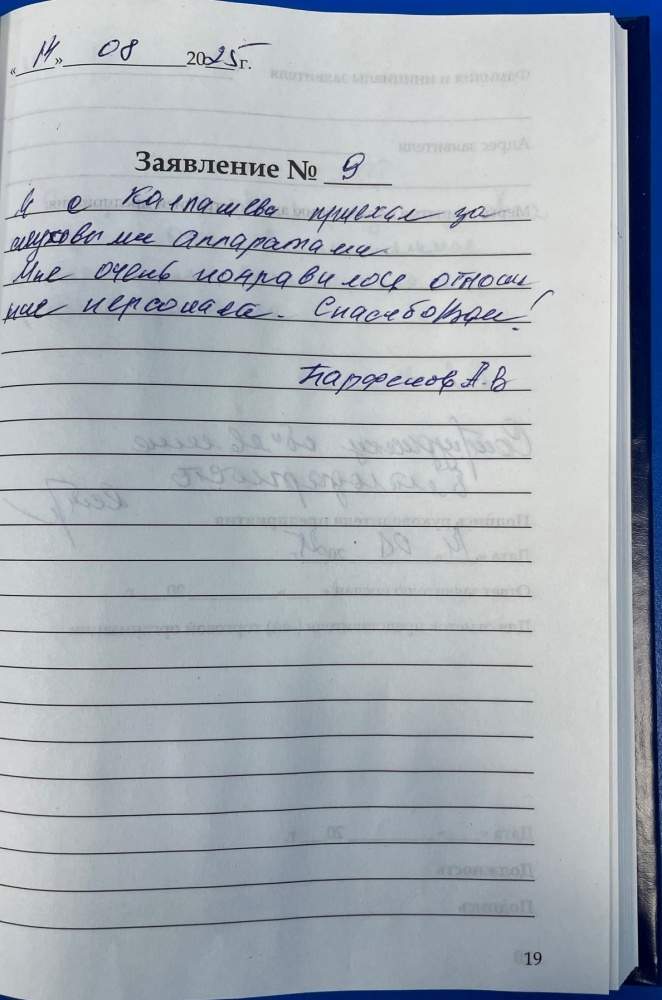 «14» 08 2025 г.
Заявление № 9
Я с Колпашева приехал за
слуховыми аппаратами
Мне очень понравилось отноше
ние персонала. Спасибо Вам!
Парфенов А.В
19